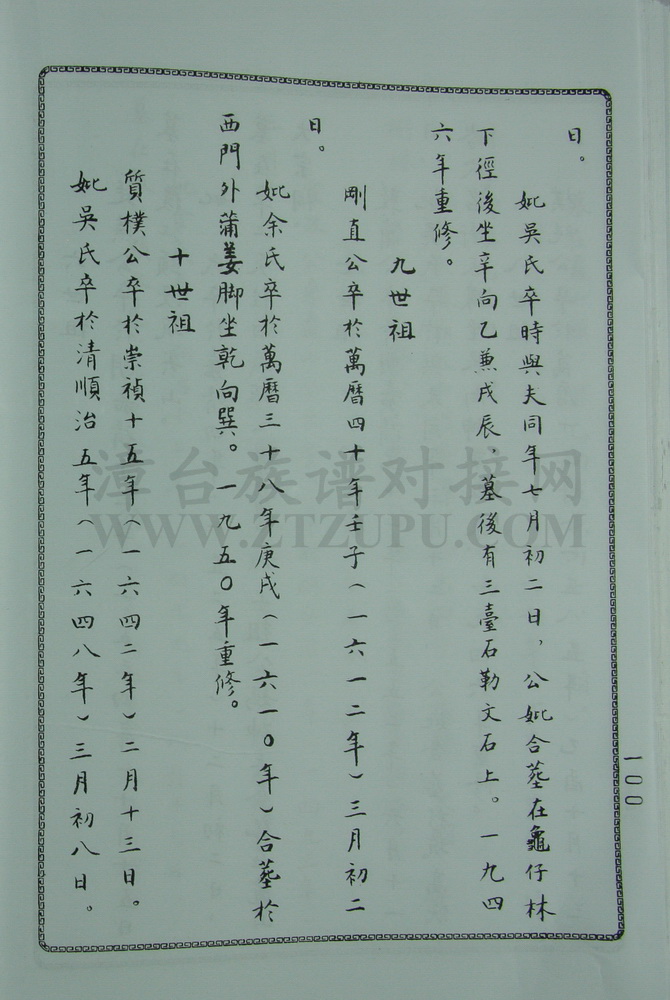 日。
妣吳氏卒時與夫同年七月初二日，公妣合墓在龜仔林
下徑後坐辛向乙兼戌辰，墓後有三臺石勒文石上。一九四
六年重修。
九世祖
剛直公卒於萬曆四十年壬子（一六一二年）三月初二
日。
妣余氏卒於萬曆三十八年庚戌（一六一〇年）合墓於
西門外蒲姜脚坐乾向巽。一九五〇年重修。
十世祖
質樸公卒於崇禎十五年（一六四二年）二月十三日。
妣吳氏卒於清順治五年（一六四八年）三月初八日。
100
漳台族谱对接网
WWW.ZTZUPU.COM